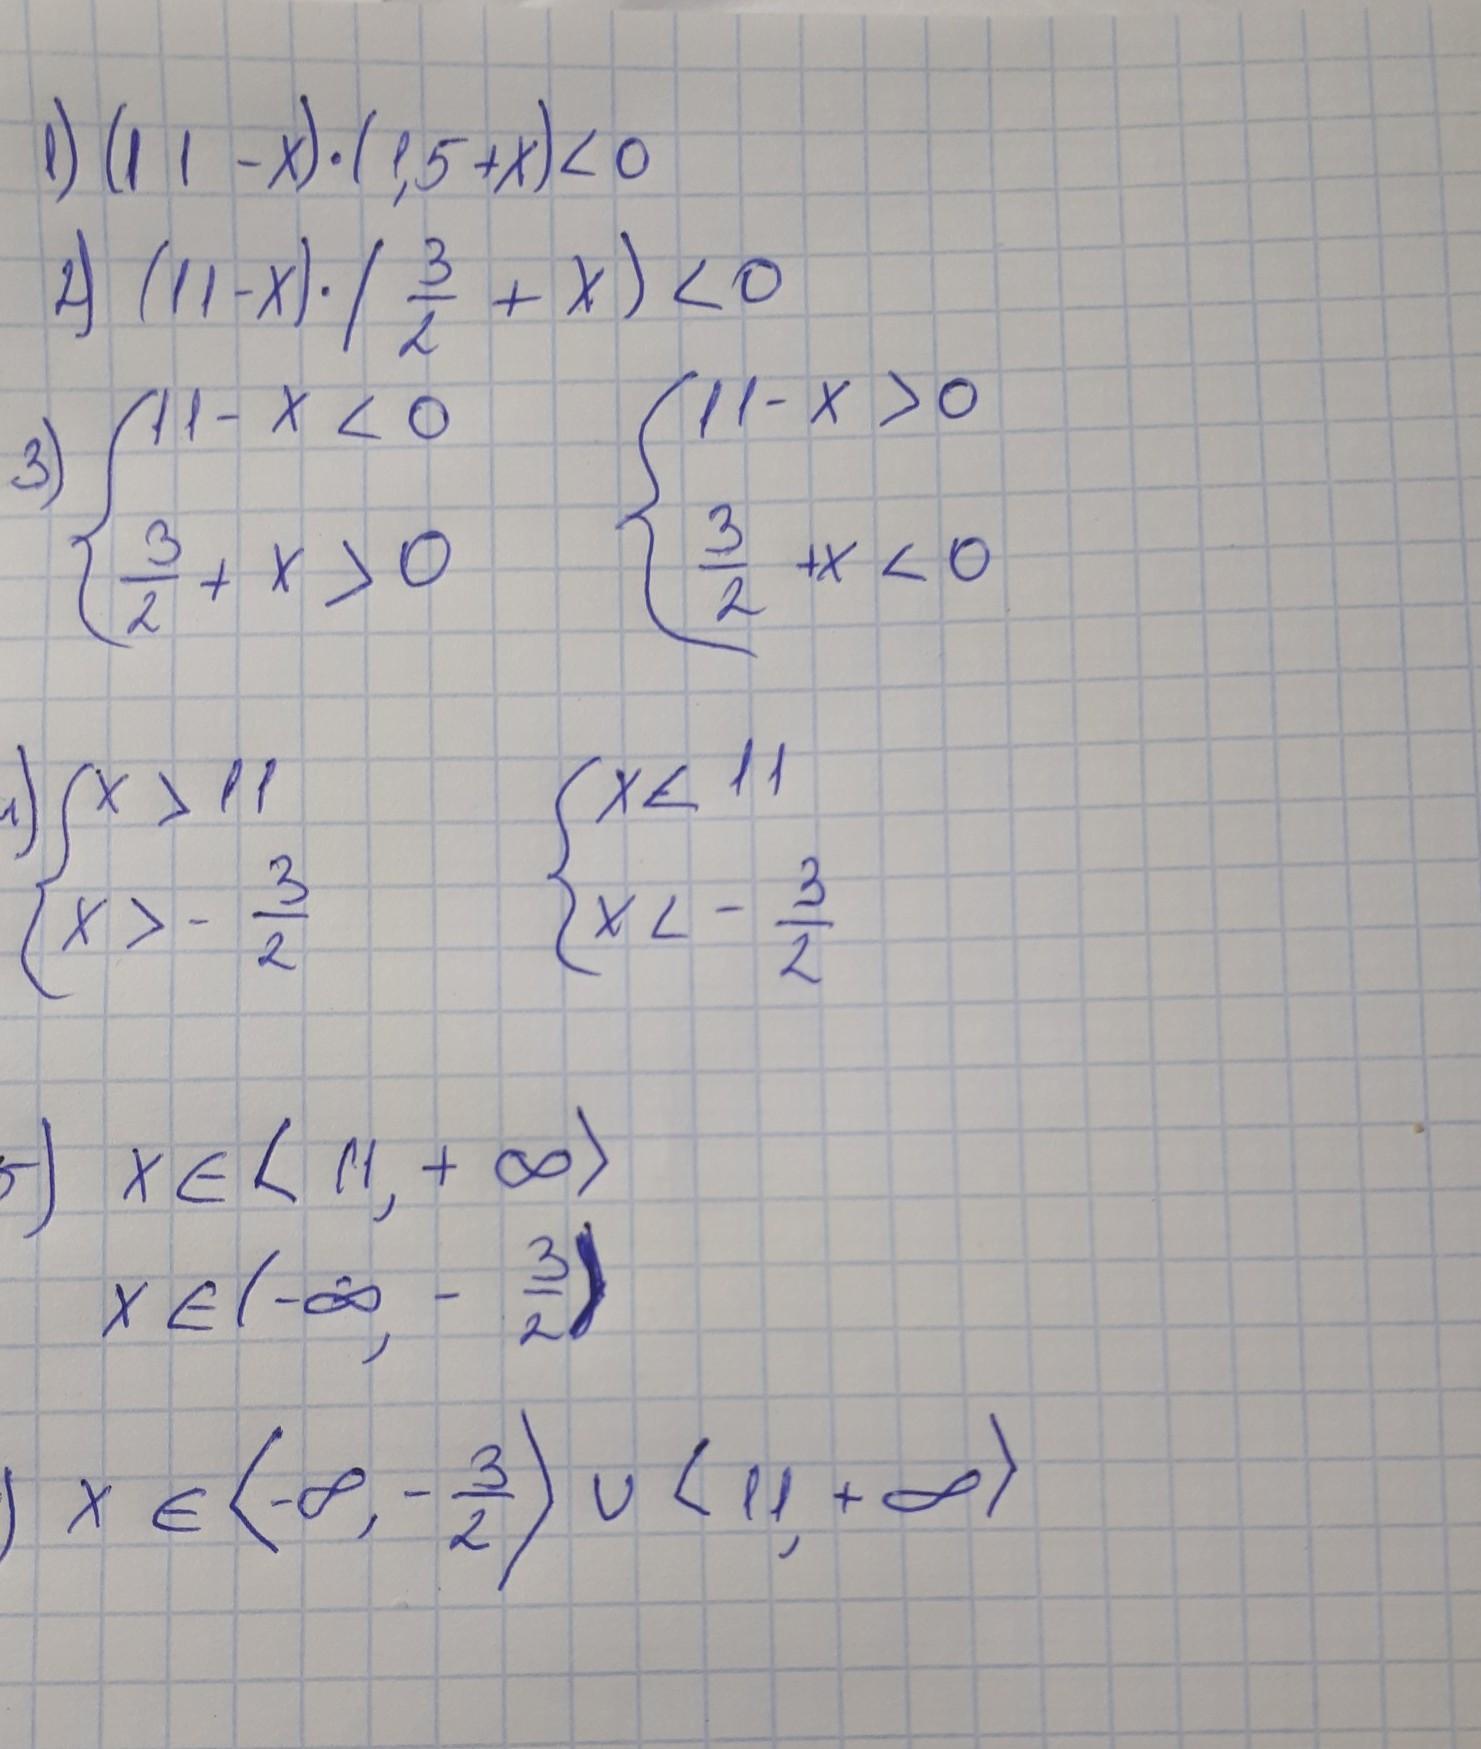 1) (11 -x)·(1,5+x)<0
2) (11-x)·(3/2 + x) <0
3) { 11- x < 0 { 11- x >0
3/2 + x > 0 3/2 +x < 0
4) { x > 11 { x< 11
x > - 3/2 x < - 3/2
5) x ∈ ⟨ 11, + ∞⟩
x ∈ (-∞, - 3/2)
) x ∈ ⟨-∞, - 3/2) ∪ ⟨ 11, + ∞⟩